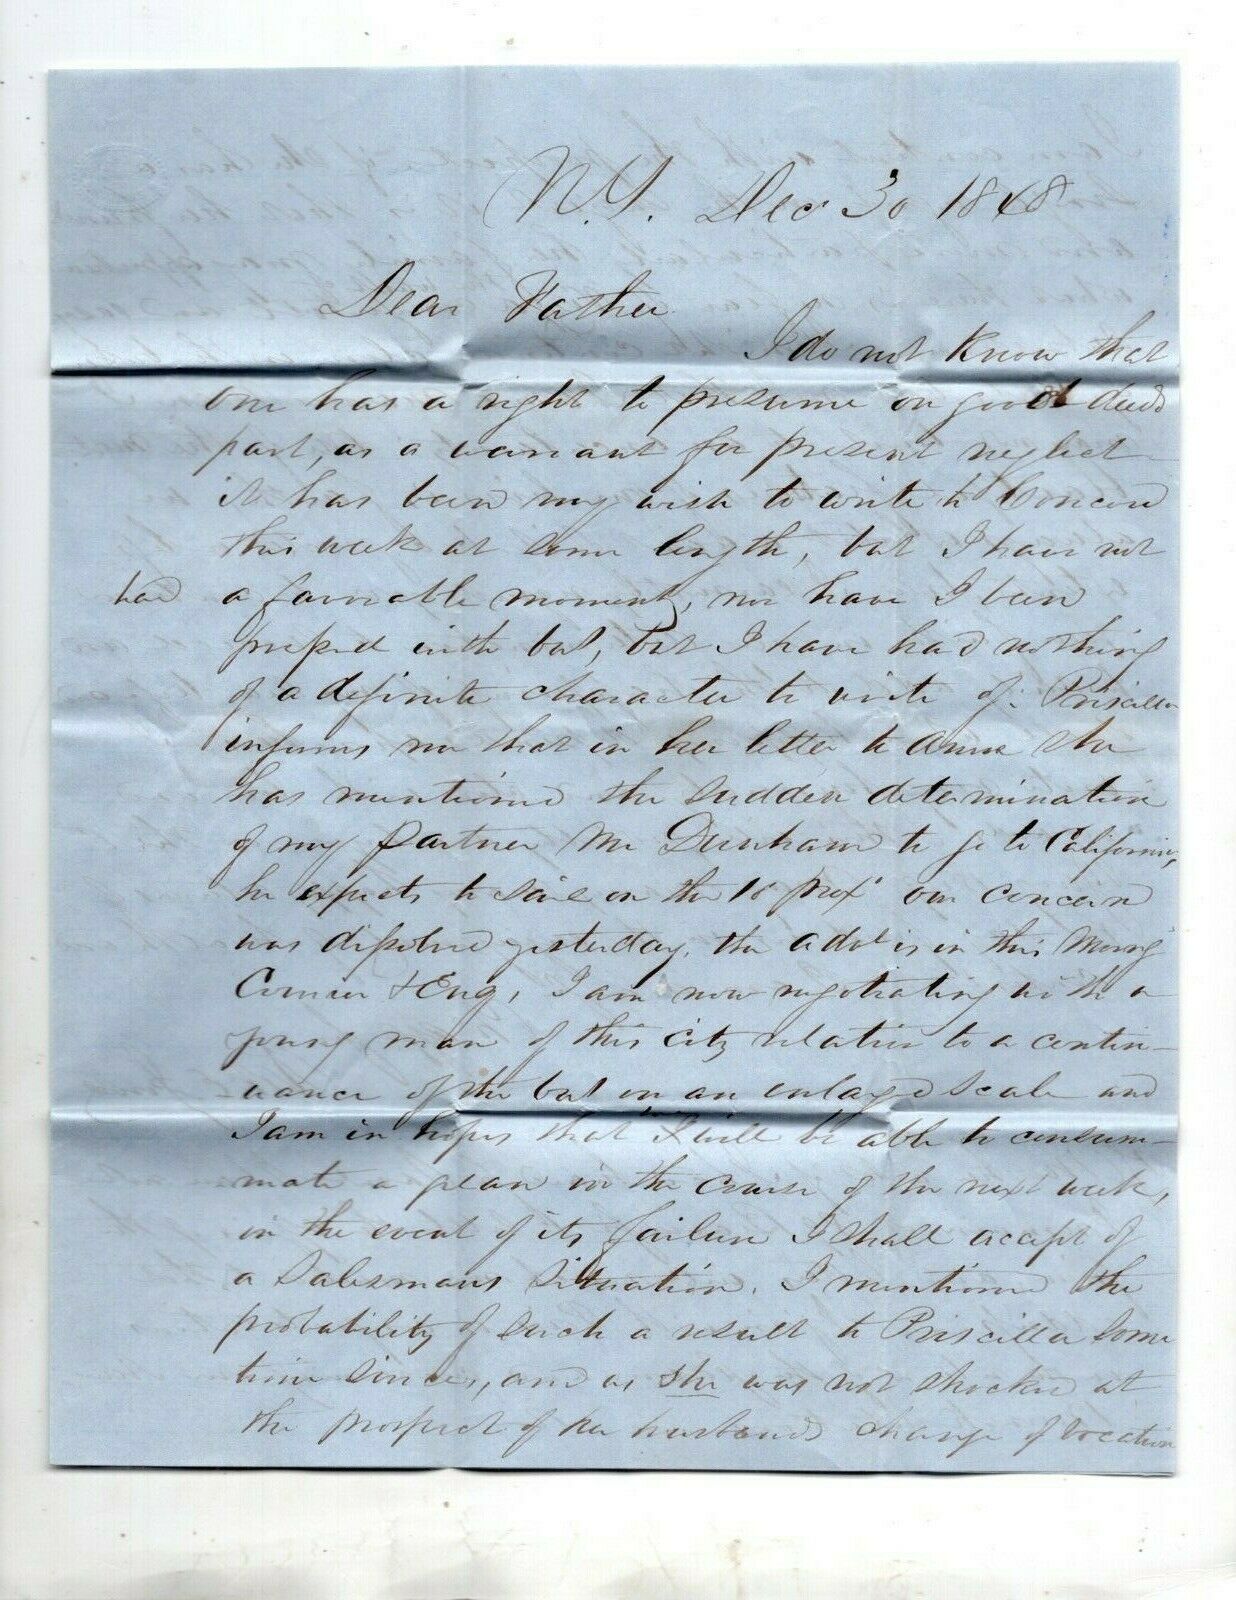 N.Y. Dec 30 1848
Dear Father
I do not know that
one has a right to presume on good deeds
past, as a warrant for present neglect
it has been my wish to write to Concord
this week at some length, but I have not
had a favorable moment, nor have I been
but, but I have had nothing
of a definite character to write of: Priscilla
informs me that in her letter to Anna she
has mentioned the sudden determination
of my partner Mr Dunham to go to California,
he expects to sail on the 10 prox' our concern
was dissolved yesterday, the advt is in this Morng
Courier & Enq, I am now negotiating with a
young man of this city relative to a contin-
uance of the bus on an enlarged scale and
I am in hopes that I will be able to consum-
mate a plan in the course of the next week,
in the event of its failure I shall accept of
a salesmans situation. I mentioned the
probability of such a result to Priscilla some
time since, and as she was not shocked at
the prospect of her husbands change of vocation